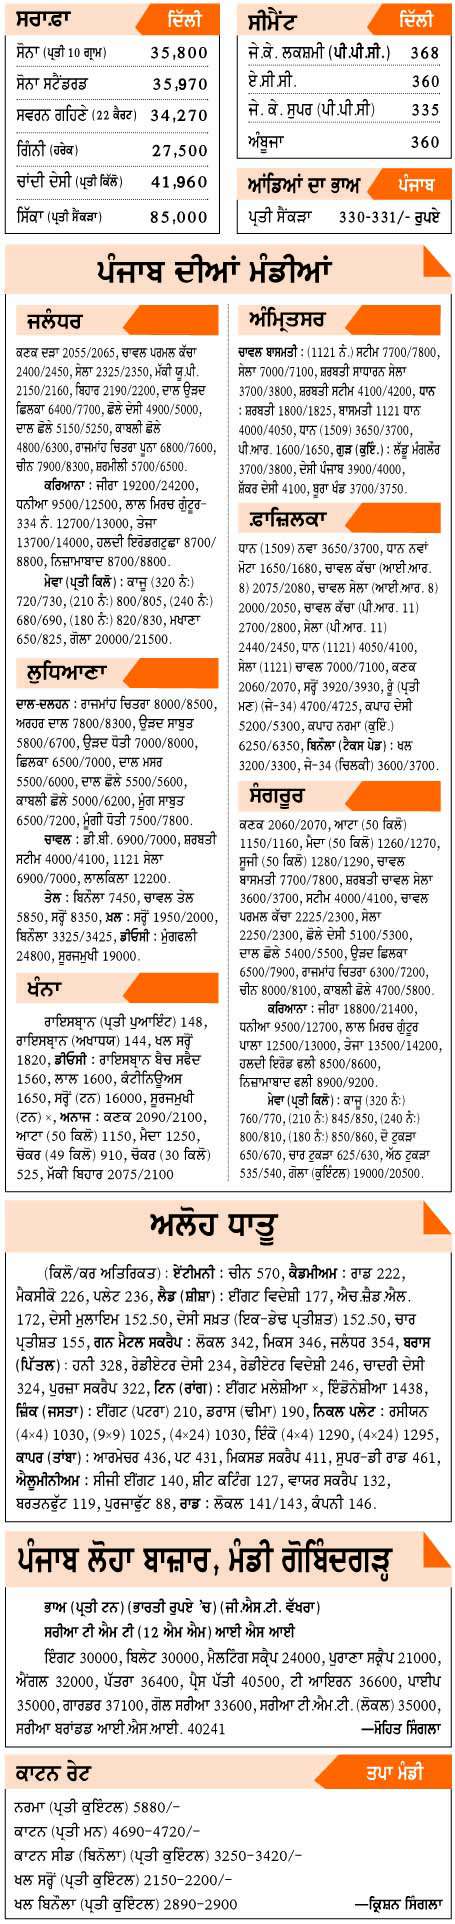 ਸਰਾਫ਼ਾ ਦਿੱਲੀ
ਸੋਨਾ (ਪ੍ਰਤੀ 10 ਗ੍ਰਾਮ) 35,800
ਸੋਨਾ ਸਟੈਂਡਰਡ 35,970
ਸਵਰਨ ਗਹਿਣੇ (22 ਕੈਰਟ) 34,270
ਗਿੰਨੀ (ਹਰੇਕ) 27,500
ਚਾਂਦੀ ਦੇਸੀ (ਪ੍ਰਤੀ ਕਿੱਲੋ) 41,960
ਸਿੱਕਾ (ਪ੍ਰਤੀ ਸੈਂਕੜਾ) 85,000
ਸੀਮੈਂਟ ਦਿੱਲੀ
ਜੇ.ਕੇ. ਲਕਸ਼ਮੀ (ਪੀ.ਪੀ.ਸੀ.) 368
ਏ.ਸੀ.ਸੀ. 360
ਜੇ. ਕੇ. ਸੁਪਰ (ਪੀ.ਪੀ.ਸੀ) 335
ਅੰਬੂਜਾ 360
ਆਂਡਿਆਂ ਦਾ ਭਾਅ ਪੰਜਾਬ
ਪ੍ਰਤੀ ਸੈਂਕੜਾ 330-331/- ਰੁਪਏ
ਪੰਜਾਬ ਦੀਆਂ ਮੰਡੀਆਂ
ਜਲੰਧਰ
ਕਣਕ ਦੜਾ 2055/2065, ਚਾਵਲ ਪਰਮਲ ਕੱਚਾ
2400/2450, ਸੇਲਾ 2325/2350, ਮੱਕੀ ਯੂ.ਪੀ.
2150/2160, ਬਿਹਾਰ 2190/2200, ਦਾਲ ਉੜਦ
ਛਿਲਕਾ 6400/7700, ਛੋਲੇ ਦੇਸੀ 4900/5000,
ਦਾਲ ਛੋਲੇ 5150/5250, ਕਾਬਲੀ ਛੋਲੇ
4800/6300, ਰਾਜਮਾਂਹ ਚਿਤਰਾ ਪੂਨਾ 6800/7600,
ਚੀਨ 7900/8300, ਸ਼ਰਮੀਲੀ 5700/6500.
ਕਰਿਆਨਾ : ਜੀਰਾ 19200/24200,
ਧਨੀਆ 9500/12500, ਲਾਲ ਮਿਰਚ ਗੁੰਟੂਰ-
334 ਨੰ. 12700/13000, ਤੇਜਾ
13700/14000, ਹਲਦੀ ਇਰੋਡਗਟੁਛਾ 8700/
8800, ਨਿਜ਼ਾਮਾਬਾਦ 8700/8800.
ਮੇਵਾ (ਪ੍ਰਤੀ ਕਿਲੋ) : ਕਾਜੂ (320 ਨੰ:)
720/730, (210 ਨੰ:) 800/805, (240 ਨੰ:)
680/690, (180 ਨੰ:) 820/830, ਮਖਾਣਾ
650/825, ਗੋਲਾ 20000/21500.
ਲੁਧਿਆਣਾ
ਦਾਲ-ਦਲਹਨ : ਰਾਜਮਾਂਹ ਚਿਤਰਾ 8000/8500,
ਅਰਹਰ ਦਾਲ 7800/8300, ਉੜਦ ਸਾਬੁਤ
5800/6700, ਉੜਦ ਧੋਤੀ 7000/8000,
ਛਿਲਕਾ 6500/7000, ਦਾਲ ਮਸਰ
5500/6000, ਦਾਲ ਛੋਲੇ 5500/5600,
ਕਾਬਲੀ ਛੋਲੇ 5000/6200, ਮੂੰਗ ਸਾਬੁਤ
6500/7200, ਮੂੰਗੀ ਧੋਤੀ 7500/7800.
ਚਾਵਲ : ਡੀ.ਬੀ. 6900/7000, ਸ਼ਰਬਤੀ
ਸਟੀਮ 4000/4100, 1121 ਸੇਲਾ
6900/7000, ਲਾਲਕਿਲਾ 12200.
ਤੇਲ : ਬਿਨੌਲਾ 7450, ਚਾਵਲ ਤੇਲ
5850, ਸਰ੍ਹੋਂ 8350, ਖ਼ਲ : ਸਰ੍ਹੋਂ 1950/2000,
ਬਿਨੌਲਾ 3325/3425, ਡੀਓਸੀ : ਮੂੰਗਫਲੀ
24800, ਸੂਰਜਮੁਖੀ 19000.
ਖੰਨਾ
ਰਾਇਸਬ੍ਰਾਨ (ਪ੍ਰਤੀ ਪੁਆਇੰਟ) 148,
ਰਾਇਸਬ੍ਰਾਨ (ਅਖਾਧਯ) 144, ਖਲ ਸਰ੍ਹੋਂ
1820, ਡੀਓਸੀ : ਰਾਇਸਬ੍ਰਾਨ ਬੈਚ ਸਫੈਦ
1560, ਲਾਲ 1600, ਕੰਟੀਨਿਊਅਸ
1650, ਸਰ੍ਹੋਂ (ਟਨ) 16000, ਸੂਰਜਮੁਖੀ
(ਟਨ) ×, ਅਨਾਜ : ਕਣਕ 2090/2100,
ਆਟਾ (50 ਕਿਲੋ) 1150, ਮੈਦਾ 1250,
ਚੋਕਰ (49 ਕਿਲੋ) 910, ਚੋਕਰ (30 ਕਿਲੋ)
525, ਮੱਕੀ ਬਿਹਾਰ 2075/2100
ਅੰਮ੍ਰਿਤਸਰ
ਚਾਵਲ ਬਾਸਮਤੀ : (1121 ਨੰ.) ਸਟੀਮ 7700/7800,
ਸੇਲਾ 7000/7100, ਸ਼ਰਬਤੀ ਸਾਧਾਰਨ ਸੇਲਾ
3700/3800, ਸ਼ਰਬਤੀ ਸਟੀਮ 4100/4200, ਧਾਨ
: ਸ਼ਰਬਤੀ 1800/1825, ਬਾਸਮਤੀ 1121 ਧਾਨ
4000/4050, ਧਾਨ (1509) 3650/3700,
ਪੀ.ਆਰ. 1600/1650, ਗੁੜ (ਕੁਇੰ.) : ਲੱਡੂ ਮੰਗਲੌਰ
3700/3800, ਦੇਸੀ ਪੰਜਾਬ 3900/4000,
ਸ਼ੱਕਰ ਦੇਸੀ 4100, ਬੂਰਾ ਖੰਡ 3700/3750.
ਫ਼ਾਜ਼ਿਲਕਾ
ਧਾਨ (1509) ਨਵਾ 3650/3700, ਧਾਨ ਨਵਾਂ
ਮੋਟਾ 1650/1680, ਚਾਵਲ ਕੱਚਾ (ਆਈ.ਆਰ.
8) 2075/2080, ਚਾਵਲ ਸੇਲਾ (ਆਈ.ਆਰ. 8)
2000/2050, ਚਾਵਲ ਕੱਚਾ (ਪੀ.ਆਰ. 11)
2700/2800, ਸੇਲਾ (ਪੀ.ਆਰ. 11)
2440/2450, ਧਾਨ (1121) 4050/4100,
ਸੇਲਾ (1121) ਚਾਵਲ 7000/7100, ਕਣਕ
2060/2070, ਸਰ੍ਹੋਂ 3920/3930, ਰੂੰ (ਪ੍ਰਤੀ
ਮਣ) (ਜੇ-34) 4700/4725, ਕਪਾਹ ਦੇਸੀ
5200/5300, ਕਪਾਹ ਨਰਮਾ (ਕੁਇੰ.)
6250/6350, ਬਿਨੌਲਾ (ਟੈਕਸ ਪੇਡ) : ਖਲ
3200/3300, ਜੇ-34 (ਚਿਲਕੀ) 3600/3700.
ਸੰਗਰੂਰ
ਕਣਕ 2060/2070, ਆਟਾ (50 ਕਿਲੋ)
1150/1160, ਮੈਦਾ (50 ਕਿਲੋ) 1260/1270,
ਸੂਜੀ (50 ਕਿਲੋ) 1280/1290, ਚਾਵਲ
ਬਾਸਮਤੀ 7700/7800, ਸ਼ਰਬਤੀ ਚਾਵਲ ਸੇਲਾ
3600/3700, ਸਟੀਮ 4000/4100, ਚਾਵਲ
ਪਰਮਲ ਕੱਚਾ 2225/2300, ਸੇਲਾ
2250/2300, ਛੋਲੇ ਦੇਸੀ 5100/5300,
ਦਾਲ ਛੋਲੇ 5400/5500, ਉੜਦ ਛਿਲਕਾ
6500/7900, ਰਾਜਮਾਂਹ ਚਿਤਰਾ 6300/7200,
ਚੀਨ 8000/8100, ਕਾਬਲੀ ਛੋਲੇ 4700/5800.
ਕਰਿਆਨਾ : ਜੀਰਾ 18800/21400,
ਧਨੀਆ 9500/12700, ਲਾਲ ਮਿਰਚ ਗੁੰਟੂਰ
ਪਾਲਾ 12500/13000, ਤੇਜਾ 13500/14200,
ਹਲਦੀ ਇਰੋਡ ਫਲੀ 8500/8600,
ਨਿਜ਼ਾਮਾਬਾਦ ਫਲੀ 8900/9200.
ਮੇਵਾ (ਪ੍ਰਤੀ ਕਿਲੋ) : ਕਾਜੂ (320 ਨੰ:)
760/770, (210 ਨੰ:) 845/850, (240 ਨੰ:)
800/810, (180 ਨੰ:) 850/860, ਦੋ ਟੁਕੜਾ
650/670, ਚਾਰ ਟੁਕੜਾ 625/630, ਅੱਠ ਟੁਕੜਾ
535/540, ਗੋਲਾ (ਕੁਇੰਟਲ) 19000/20500.
ਅਲੋਹ ਧਾਤੂ
(ਕਿਲੋ/ਕਰ ਅਤਿਰਿਕਤ) : ਏਂਟੀਮਨੀ : ਚੀਨ 570, ਕੈਡਮੀਅਮ : ਰਾਡ 222,
ਮੈਕਸੀਕੋ 226, ਪਲੇਟ 236, ਲੈਡ (ਸ਼ੀਸ਼ਾ) : ਈਂਗਟ ਵਿਦੇਸ਼ੀ 177, ਐਚ.ਜ਼ੈਡ.ਐਲ.
172, ਦੇਸੀ ਮੁਲਾਇਮ 152.50, ਦੇਸੀ ਸਖ਼ਤ (ਇਕ-ਡੇਢ ਪ੍ਰਤੀਸ਼ਤ) 152.50, ਚਾਰ
ਪ੍ਰਤੀਸ਼ਤ 155, ਗਨ ਮੈਟਲ ਸਕਰੈਪ : ਲੋਕਲ 342, ਮਿਕਸ 346, ਜਲੰਧਰ 354, ਬਰਾਸ
(ਪਿੱਤਲ) : ਹਨੀ 328, ਰੇਡੀਏਟਰ ਦੇਸੀ 234, ਰੇਡੀਏਟਰ ਵਿਦੇਸ਼ੀ 246, ਚਾਦਰੀ ਦੇਸੀ
324, ਪੁਰਜ਼ਾ ਸਕਰੈਪ 322, ਟਿਨ (ਰਾਂਗ) : ਈਂਗਟ ਮਲੇਸ਼ੀਆ ×, ਇੰਡੋਨੇਸ਼ੀਆ 1438,
ਜ਼ਿੰਕ (ਜਸਤਾ) : ਈਂਗਟ (ਪਟਰਾ) 210, ਡਰਾਸ (ਢੀਮਾ) 190, ਨਿਕਲ ਪਲੇਟ : ਰਸੀਯਨ
(4×4) 1030, (9×9) 1025, (4×24) 1030, ਇੰਕੋ (4×4) 1290, (4×24) 1295,
ਕਾਪਰ (ਤਾਂਬਾ) : ਆਰਮੇਚਰ 436, ਪਟ 431, ਮਿਕਸਡ ਸਕਰੈਪ 411, ਸੁਪਰ-ਡੀ ਰਾਡ 461,
ਐਲੂਮੀਨੀਅਮ : ਸੀਜੀ ਈਂਗਟ 140, ਸ਼ੀਟ ਕਟਿੰਗ 127, ਵਾਯਰ ਸਕਰੈਪ 132,
ਬਰਤਨਫੁੱਟ 119, ਪੁਰਜਾਫੁੱਟ 88, ਰਾਡ : ਲੋਕਲ 141/143, ਕੰਪਨੀ 146.
ਪੰਜਾਬ ਲੋਹਾ ਬਾਜ਼ਾਰ, ਮੰਡੀ ਗੋਬਿੰਦਗੜ੍ਹ
ਭਾਅ (ਪ੍ਰਤੀ ਟਨ) (ਭਾਰਤੀ ਰੁਪਏ 'ਚ) (ਜੀ.ਐਸ.ਟੀ. ਵੱਖਰਾ)
ਸਰੀਆ ਟੀ ਐਮ ਟੀ (12 ਐਮ ਐਮ) ਆਈ ਐਸ ਆਈ
ਇੰਗਟ 30000, ਬਿਲੇਟ 30000, ਮੈਲਟਿੰਗ ਸਕ੍ਰੈਪ 24000, ਪੁਰਾਣਾ ਸਕ੍ਰੈਪ 21000,
ਐਂਗਲ 32000, ਪੱਤਰਾ 36400, ਪ੍ਰੈਸ ਪੱਤੀ 40500, ਟੀ ਆਇਰਨ 36600, ਪਾਈਪ
35000, ਗਾਰਡਰ 37100, ਗੋਲ ਸਰੀਆ 33600, ਸਰੀਆ ਟੀ.ਐਮ.ਟੀ. (ਲੋਕਲ) 35000,
ਸਰੀਆ ਬਰਾਂਡਡ ਆਈ.ਐਸ.ਆਈ. 40241 —ਮੋਹਿਤ ਸਿੰਗਲਾ
ਕਾਟਨ ਰੇਟ ਤਪਾ ਮੰਡੀ
ਨਰਮਾ (ਪ੍ਰਤੀ ਕੁਇੰਟਲ) 5880/-
ਕਾਟਨ (ਪ੍ਰਤੀ ਮਨ) 4690-4720/-
ਕਾਟਨ ਸੀਡ (ਬਿਨੋਲਾ) (ਪ੍ਰਤੀ ਕੁਇੰਟਲ) 3250-3420/-
ਖਲ ਸਰ੍ਹੋਂ (ਪ੍ਰਤੀ ਕੁਇੰਟਲ) 2150-2200/-
ਖਲ ਬਿਨੌਲਾ (ਪ੍ਰਤੀ ਕੁਇੰਟਲ) 2890-2900 —ਕ੍ਰਿਸ਼ਨ ਸਿੰਗਲਾ